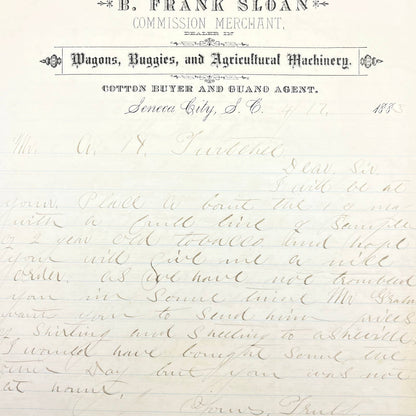 B. FRANK SLOAN
COMMISSION MERCHANT,
DEALER IN
Wagons, Buggies, and Agricultural Machinery,
COTTON BUYER AND GUANO AGENT.
Seneca City, S. C. 4/12 1883
Mr. A. H.
Dear Sir
I will be at
your Place a bout the 19
with a full line of Sample
of 2 year old tobacco and hope
you will give me a nice
order. as we have not troubled
you in Some time Mr
want you to send him prices
of Shirting and Sheeting to asheville
I would have bought some the
Day but you was not
at home.
Yours Truly